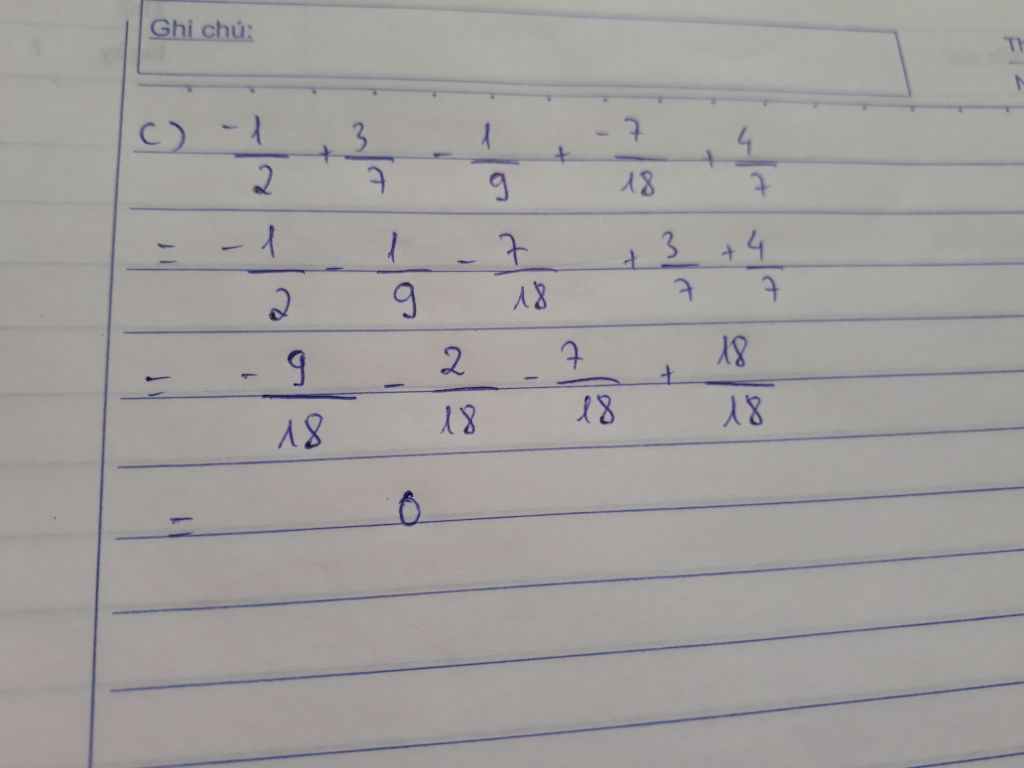 Ghi chú:
Th
N
c) -1/2 + 3/7 - 1/9 + -7/18 + 4/7
= -1/2 - 1/9 - 7/18 + 3/7 + 4/7
= - 9/18 - 2/18 - 7/18 + 18/18
= 0